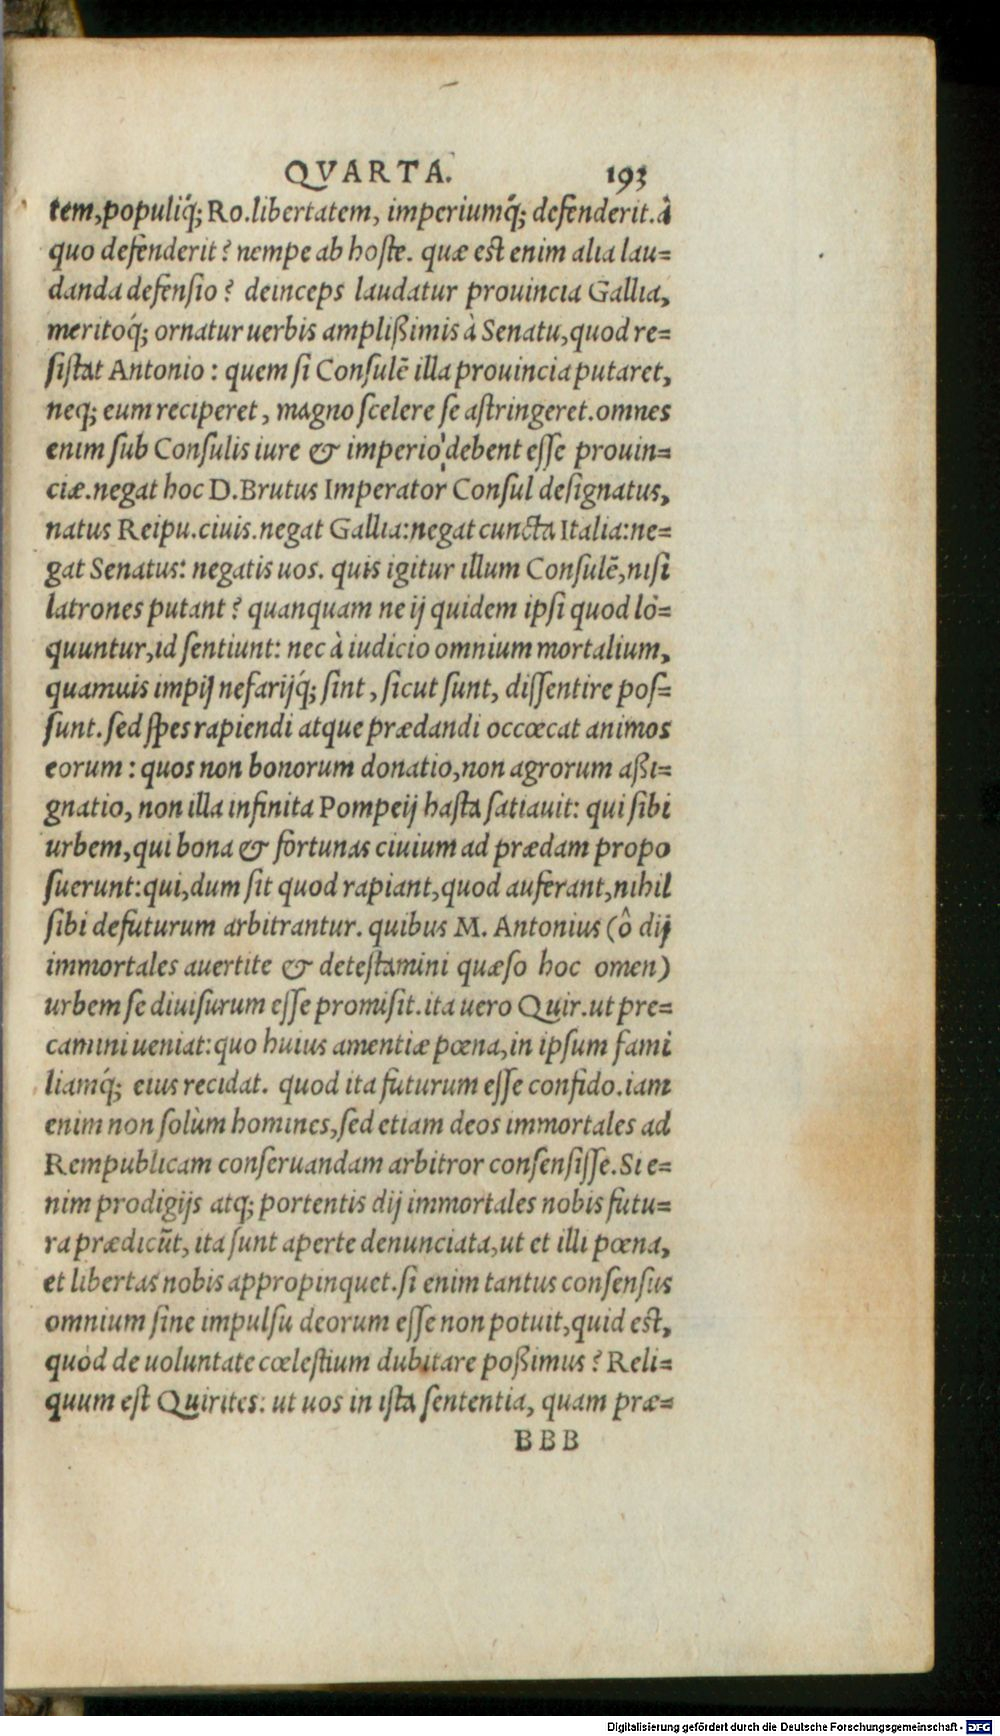 QVARTA. 193
tem, populiq́; Ro. libertatem, imperiumq́; defenderit. à
quo defenderit? nempe ab hoste. quæ est enim alia lau=
danda defensio? deinceps laudatur prouincia Gallia,
meritoq́; ornatur uerbis amplißimis à Senatu, quod re=
sistat Antonio: quem si Consulē illa prouincia putaret,
neq; eum reciperet, magno scelere se astringeret. omnes
enim sub Consulis iure & imperio debent esse prouin=
ciæ. negat hoc D. Brutus Imperator Consul designatus,
natus Reipu. ciuis. negat Gallia: negat cuncta Italia: ne=
gat Senatus: negatis uos. quis igitur illum Consulē, nisi
latrones putant? quanquam ne ij quidem ipsi quod lo=
quuntur, id sentiunt: nec à iudicio omnium mortalium,
quamuis impij nefarijq́; sint, sicut sunt, dissentire pos=
sunt. sed spes rapiendi atque prædandi occœcat animos
eorum: quos non bonorum donatio, non agrorum aßi=
gnatio, non illa infinita Pompeij hasta satiauit: qui sibi
urbem, qui bona & fortunas ciuium ad prædam propo
suerunt: qui, dum sit quod rapiant, quod auferant, nihil
sibi defuturum arbitrantur. quibus M. Antonius (ô dij
immortales auertite & detestamini quæso hoc omen)
urbem se diuisurum esse promisit. ita uero Quir. ut pre=
camini ueniat: quo huius amentiæ pœna, in ipsum fami
liamq́; eius recidat. quod ita futurum esse confido. iam
enim non solùm homines, sed etiam deos immortales ad
Rempublicam conseruandam arbitror consensisse. Si e=
nim prodigijs atq; portentis dij immortales nobis futu=
ra prædicūt, ita sunt aperte denunciata, ut et illi pœna,
et libertas nobis appropinquet. si enim tantus consensus
omnium sine impulsu deorum esse non potuit, quid est,
quòd de uoluntate cœlestium dubitare poßimus? Reli=
quum est Quirites: ut uos in ista sententia, quam præ=
BBB
Digitalisierung gefördert durch die Deutsche Forschungsgemeinschaft - DFG